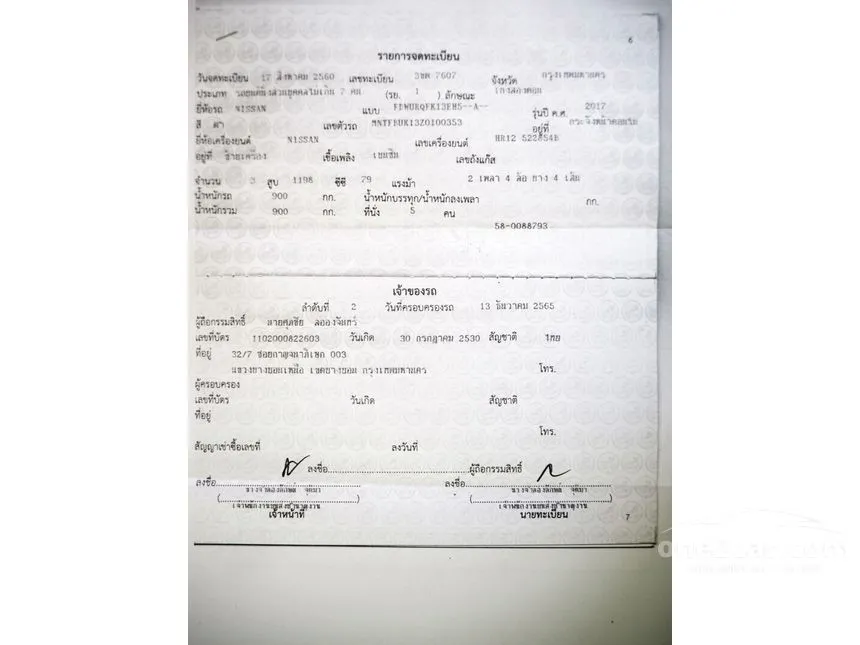 6
รายการจดทะเบียน
วันจดทะเบียน 17 สิงหาคม 2560 เลขทะเบียน 3ขพ 7607 จังหวัด กรุงเทพมหานคร
ประเภท รถยนต์นั่งส่วนบุคคลไม่เกิน 7 คน (รย. 1 ) ลักษณะ เก๋งสองตอน
ยี่ห้อรถ NISSAN แบบ FDWURQFK13FH5--A-- รุ่นปี ค.ศ. 2017
สี ดำ เลขตัวรถ อยู่ที่
ยี่ห้อเครื่องยนต์ NISSAN เลขเครื่องยนต์ HR12
อยู่ที่ ซ้ายเครื่อง เชื้อเพลิง เบนซิน เลขถังแก๊ส
จำนวน 3 สูบ 1198 ซีซี 79 แรงม้า 2 เพลา 4 ล้อ ยาง 4 เส้น
น้ำหนักรถ 900 กก. น้ำหนักบรรทุก/น้ำหนักลงเพลา กก.
น้ำหนักรวม 900 กก. ที่นั่ง 5 คน
58-0088793
เจ้าของรถ
ลำดับที่ 2 วันที่ครอบครองรถ 13 ธันวาคม 2565
ผู้ถือกรรมสิทธิ์
เลขที่บัตร 1102000822603 วันเกิด 30 กรกฎาคม 2530 สัญชาติ ไทย
ที่อยู่ 32/7 ซอยกาญจนาภิเษก 003
แขวงบางบอนเหนือ เขตบางบอน กรุงเทพมหานคร โทร.
ผู้ครอบครอง
เลขที่บัตร วันเกิด สัญชาติ
ที่อยู่
โทร.
สัญญาเช่าซื้อเลขที่ ลงวันที่
ลงชื่อ ผู้ถือกรรมสิทธิ์
ลงชื่อ ลงชื่อ
เจ้าพนักงานขนส่งชำนาญงาน เจ้าพนักงานขนส่งชำนาญงาน
เจ้าหน้าที่ นายทะเบียน
7